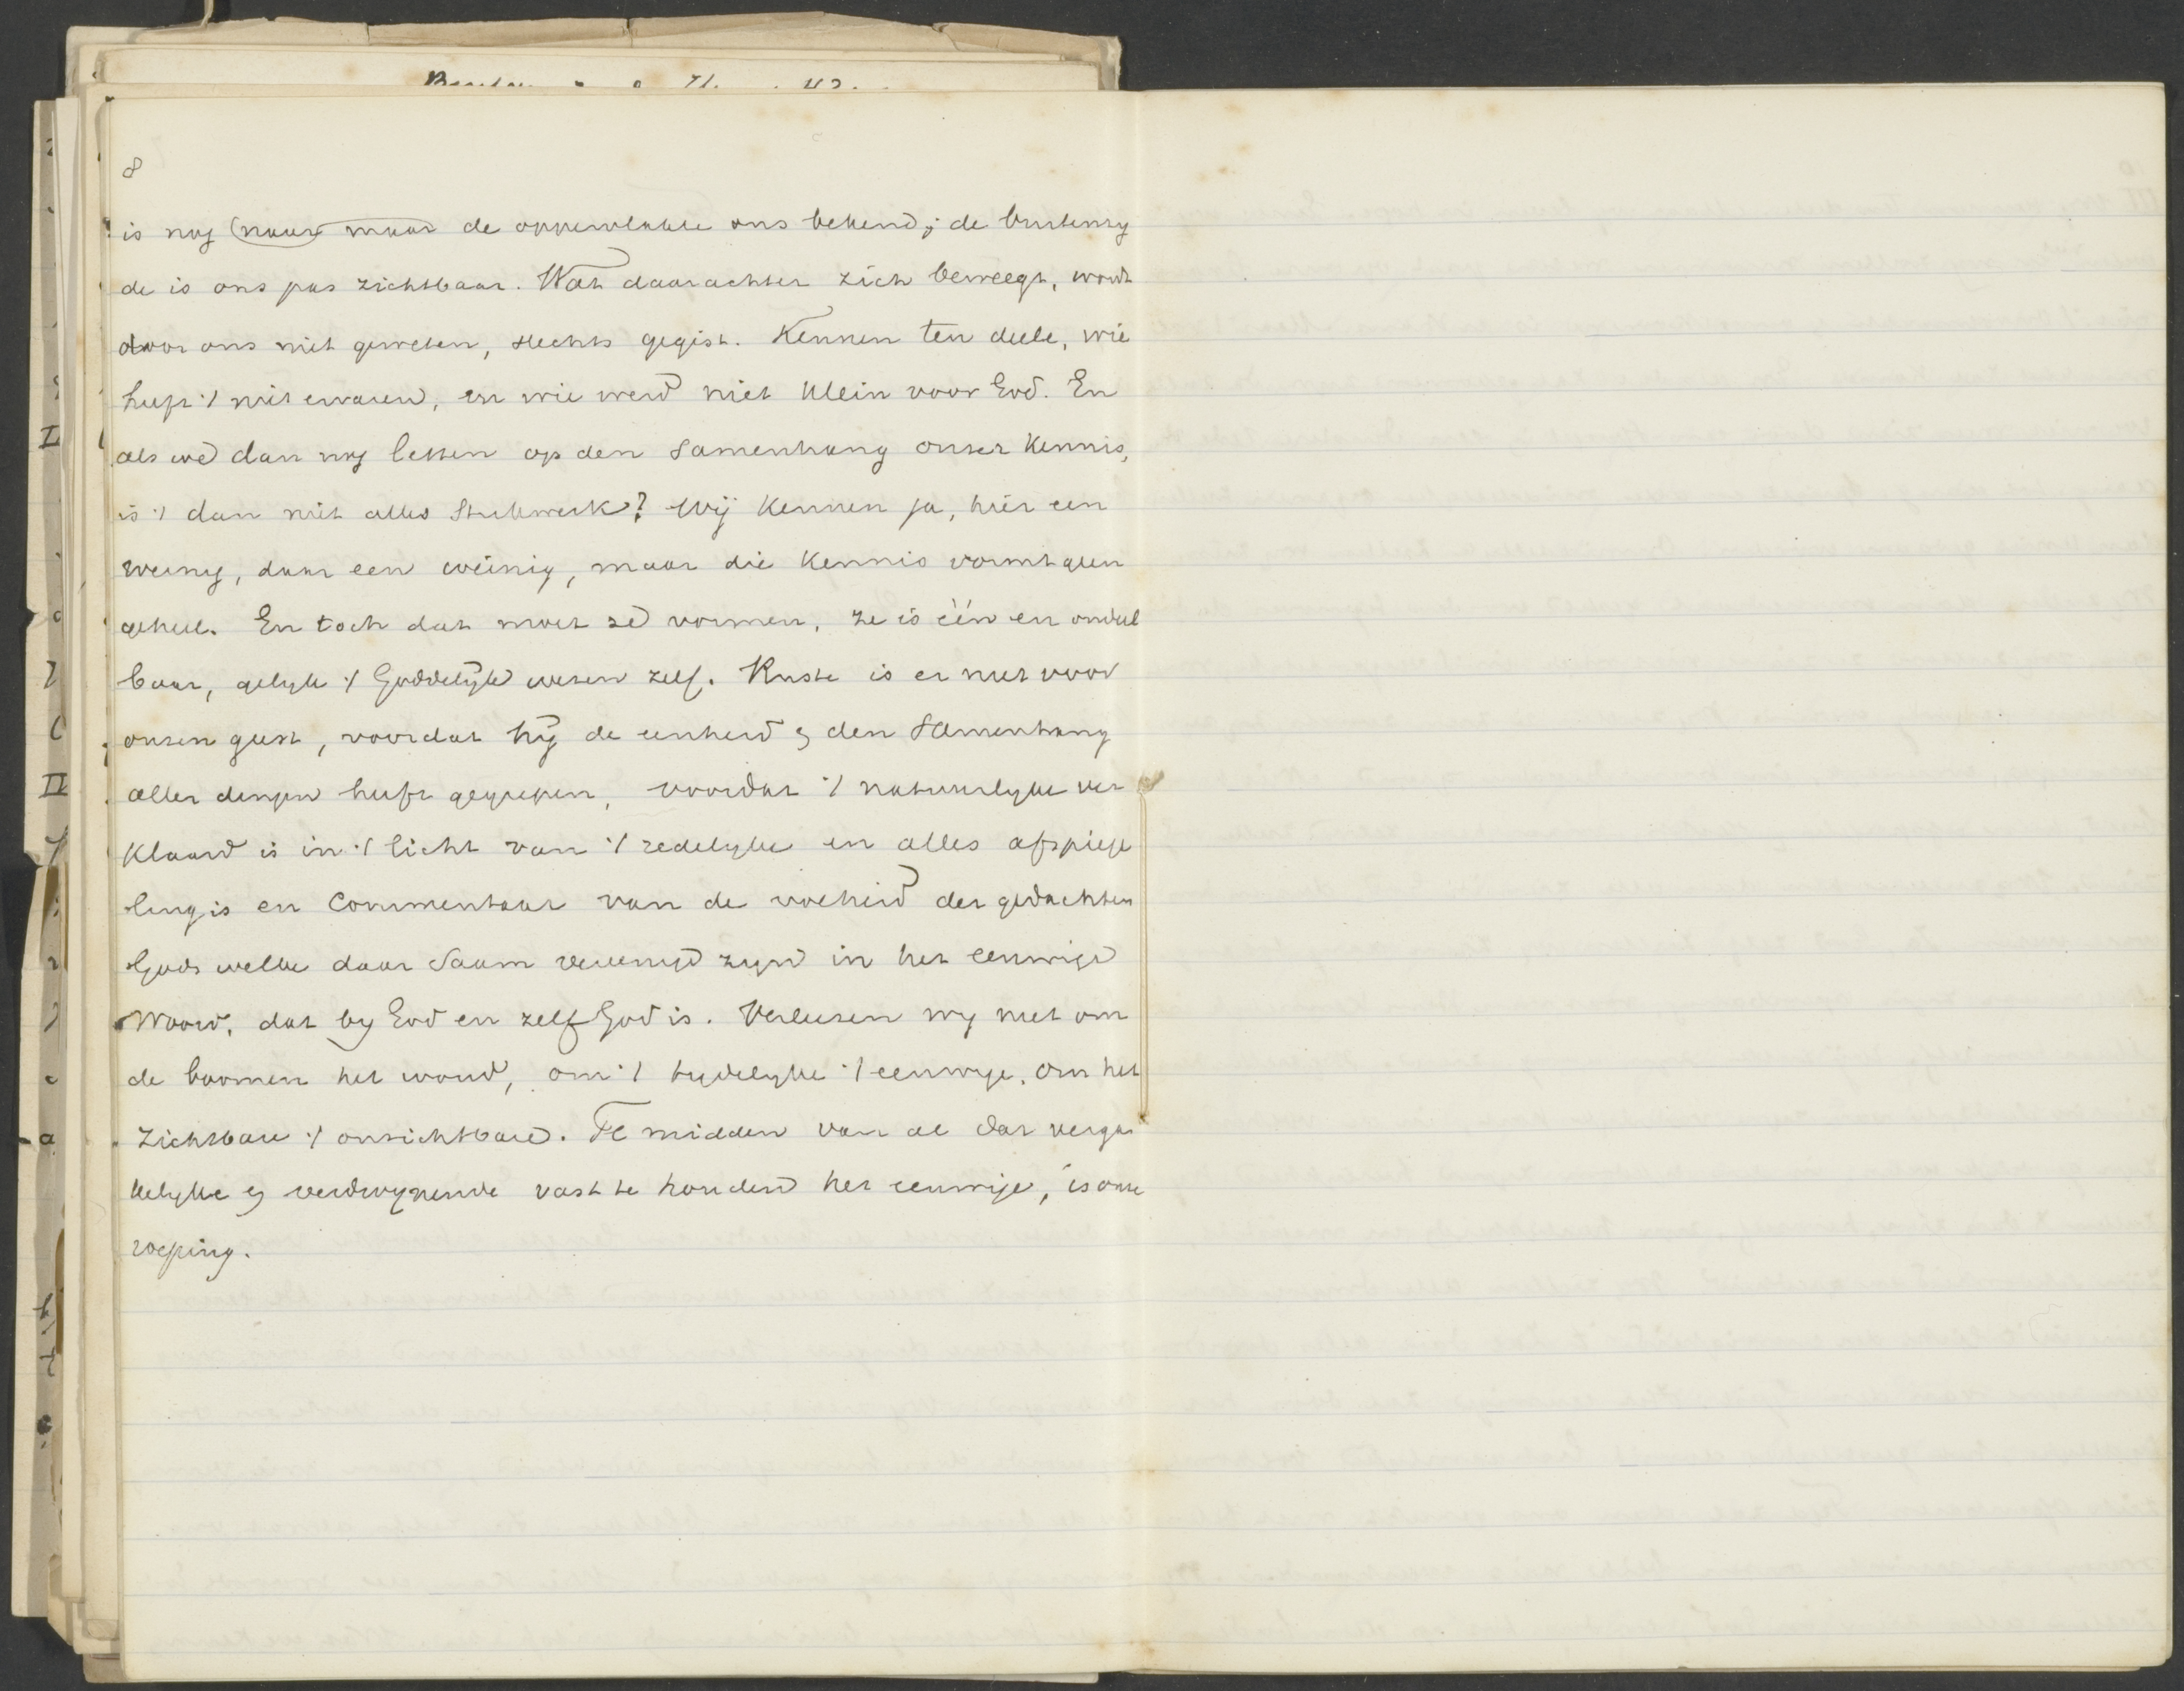 8
is nog (naar) maar de oppervlakte ons bekend; de buitenzy
de is ons pas zichtbaar. Wat daarachter zich beweegt, wordt
door ons niet geweten, slechts gegist. Kennen ten deele, wie
heeft 't niet ervaren, en wie werd niet klein voor God. En
als we dan nog letten op den Samenhang onzer Kennis,
is 't dan niet alles Stukwerk? Wij Kennen ja, hier een
weinig, daar een weinig, maar die Kennis vormt geen
geheel. En toch dat moet ze vormen, ze is één en ondeel
baar, gelyk 't Goddelyke wezen zelf. Ruste is er niet voor
onzen geest, voordat hij de eenheid & den Samenhang
aller dingen heeft gegrepen, voordat 't natuurlyke ver
klaard is in 't licht van 't redelyke en alles afspiege
ling is en Commentaar van de volheid der gedachten
Gods welke daar Saam vereenigd zyn in het eeuwige
Woord, dat by God en zelf God is. Verliezen wy niet om
de boomen het woud, om 't tydelyke 't eeuwige, om het
Zichtbare 't onzichtbare. Te midden van al dat verga
kelyke & verdwynende vast te houden het eeuwige, is onze
roeping.